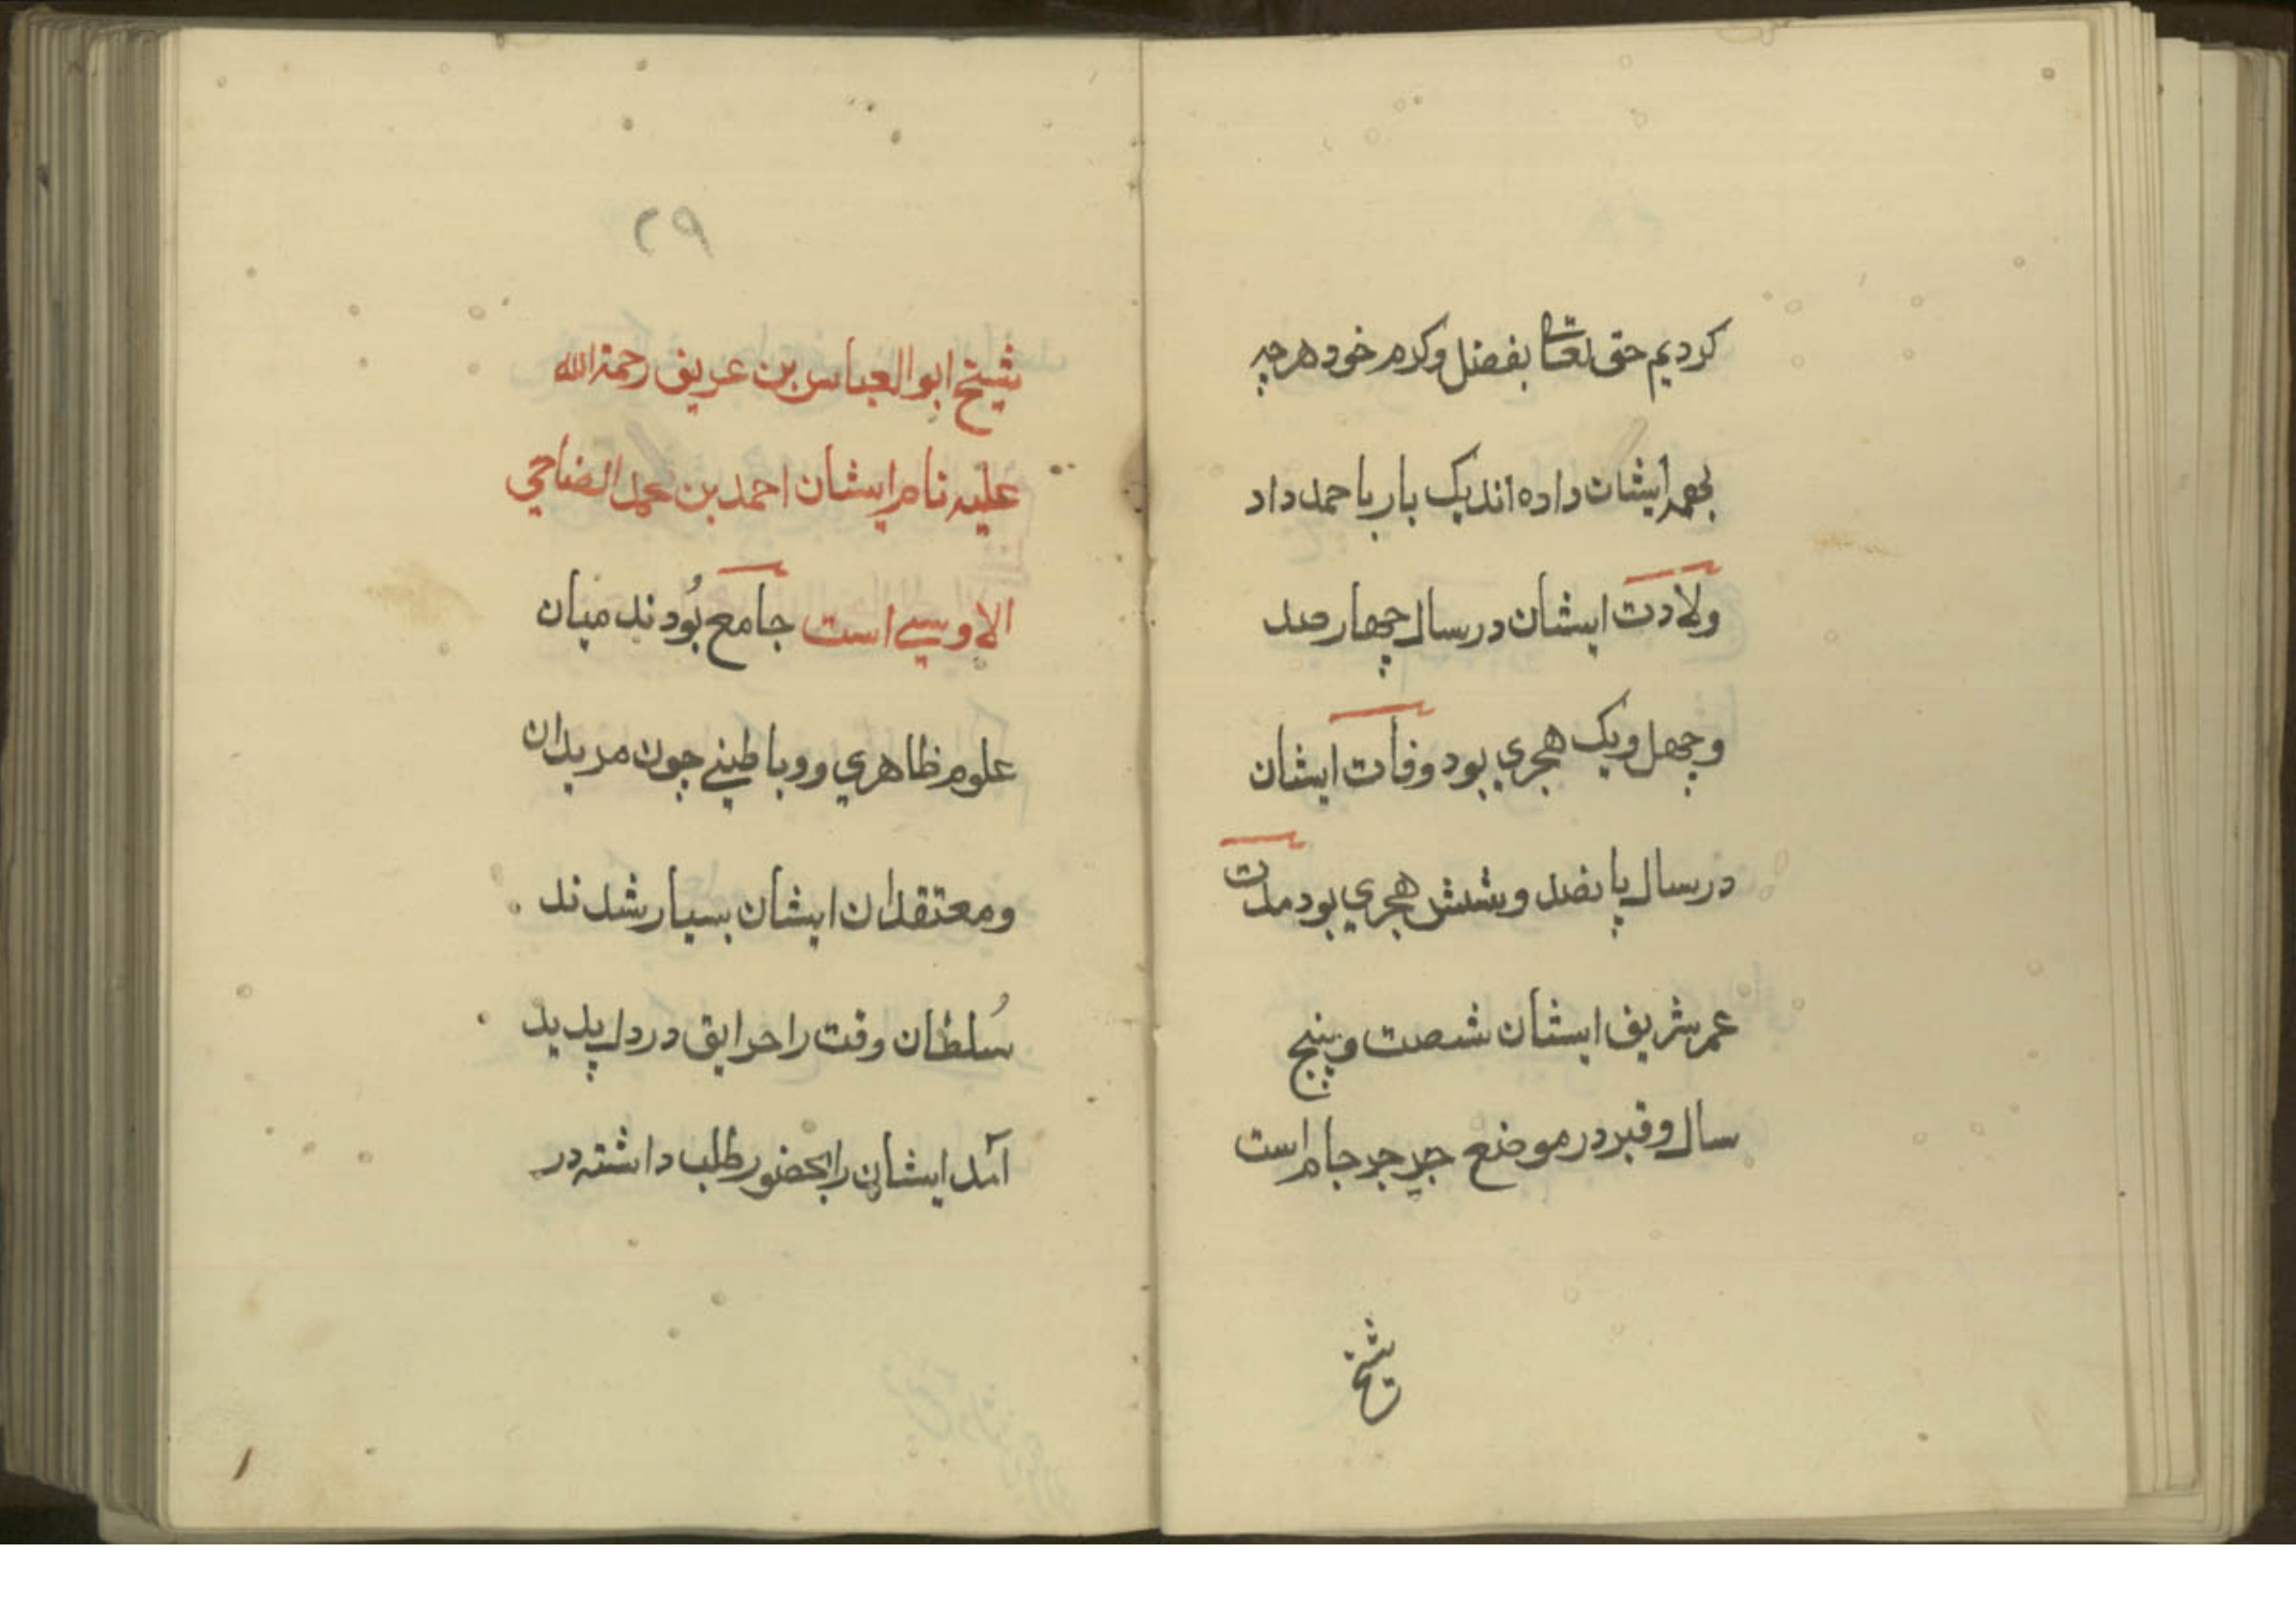 کردیم حق تعالی بفضل و کرم خود هرچه
بجمه ایشان داده اند یک بار باحمد داد
ولادت ایشان در سال چهار صد
و چهل و یک هجري بود وفات ایشان
در سال پانصد و شش هجري بود مدت
عمر شریف ایشان شصت و پنج
سال و قبر در موضع جر جر جام است
شیخ
۲۹
شیخ ابو العباس بن عریف رحمة الله
علیه نام ایشان احمد بن محمد الضاحي
الاوسي است جامع بُودند میان
علوم ظاهري و و باطني چون مریدان
و معتقدان ایشان بسیار شدند
سُلطان وقت را حرایق در دل پدید
آمد ایشان را بحضور طلب داشته در